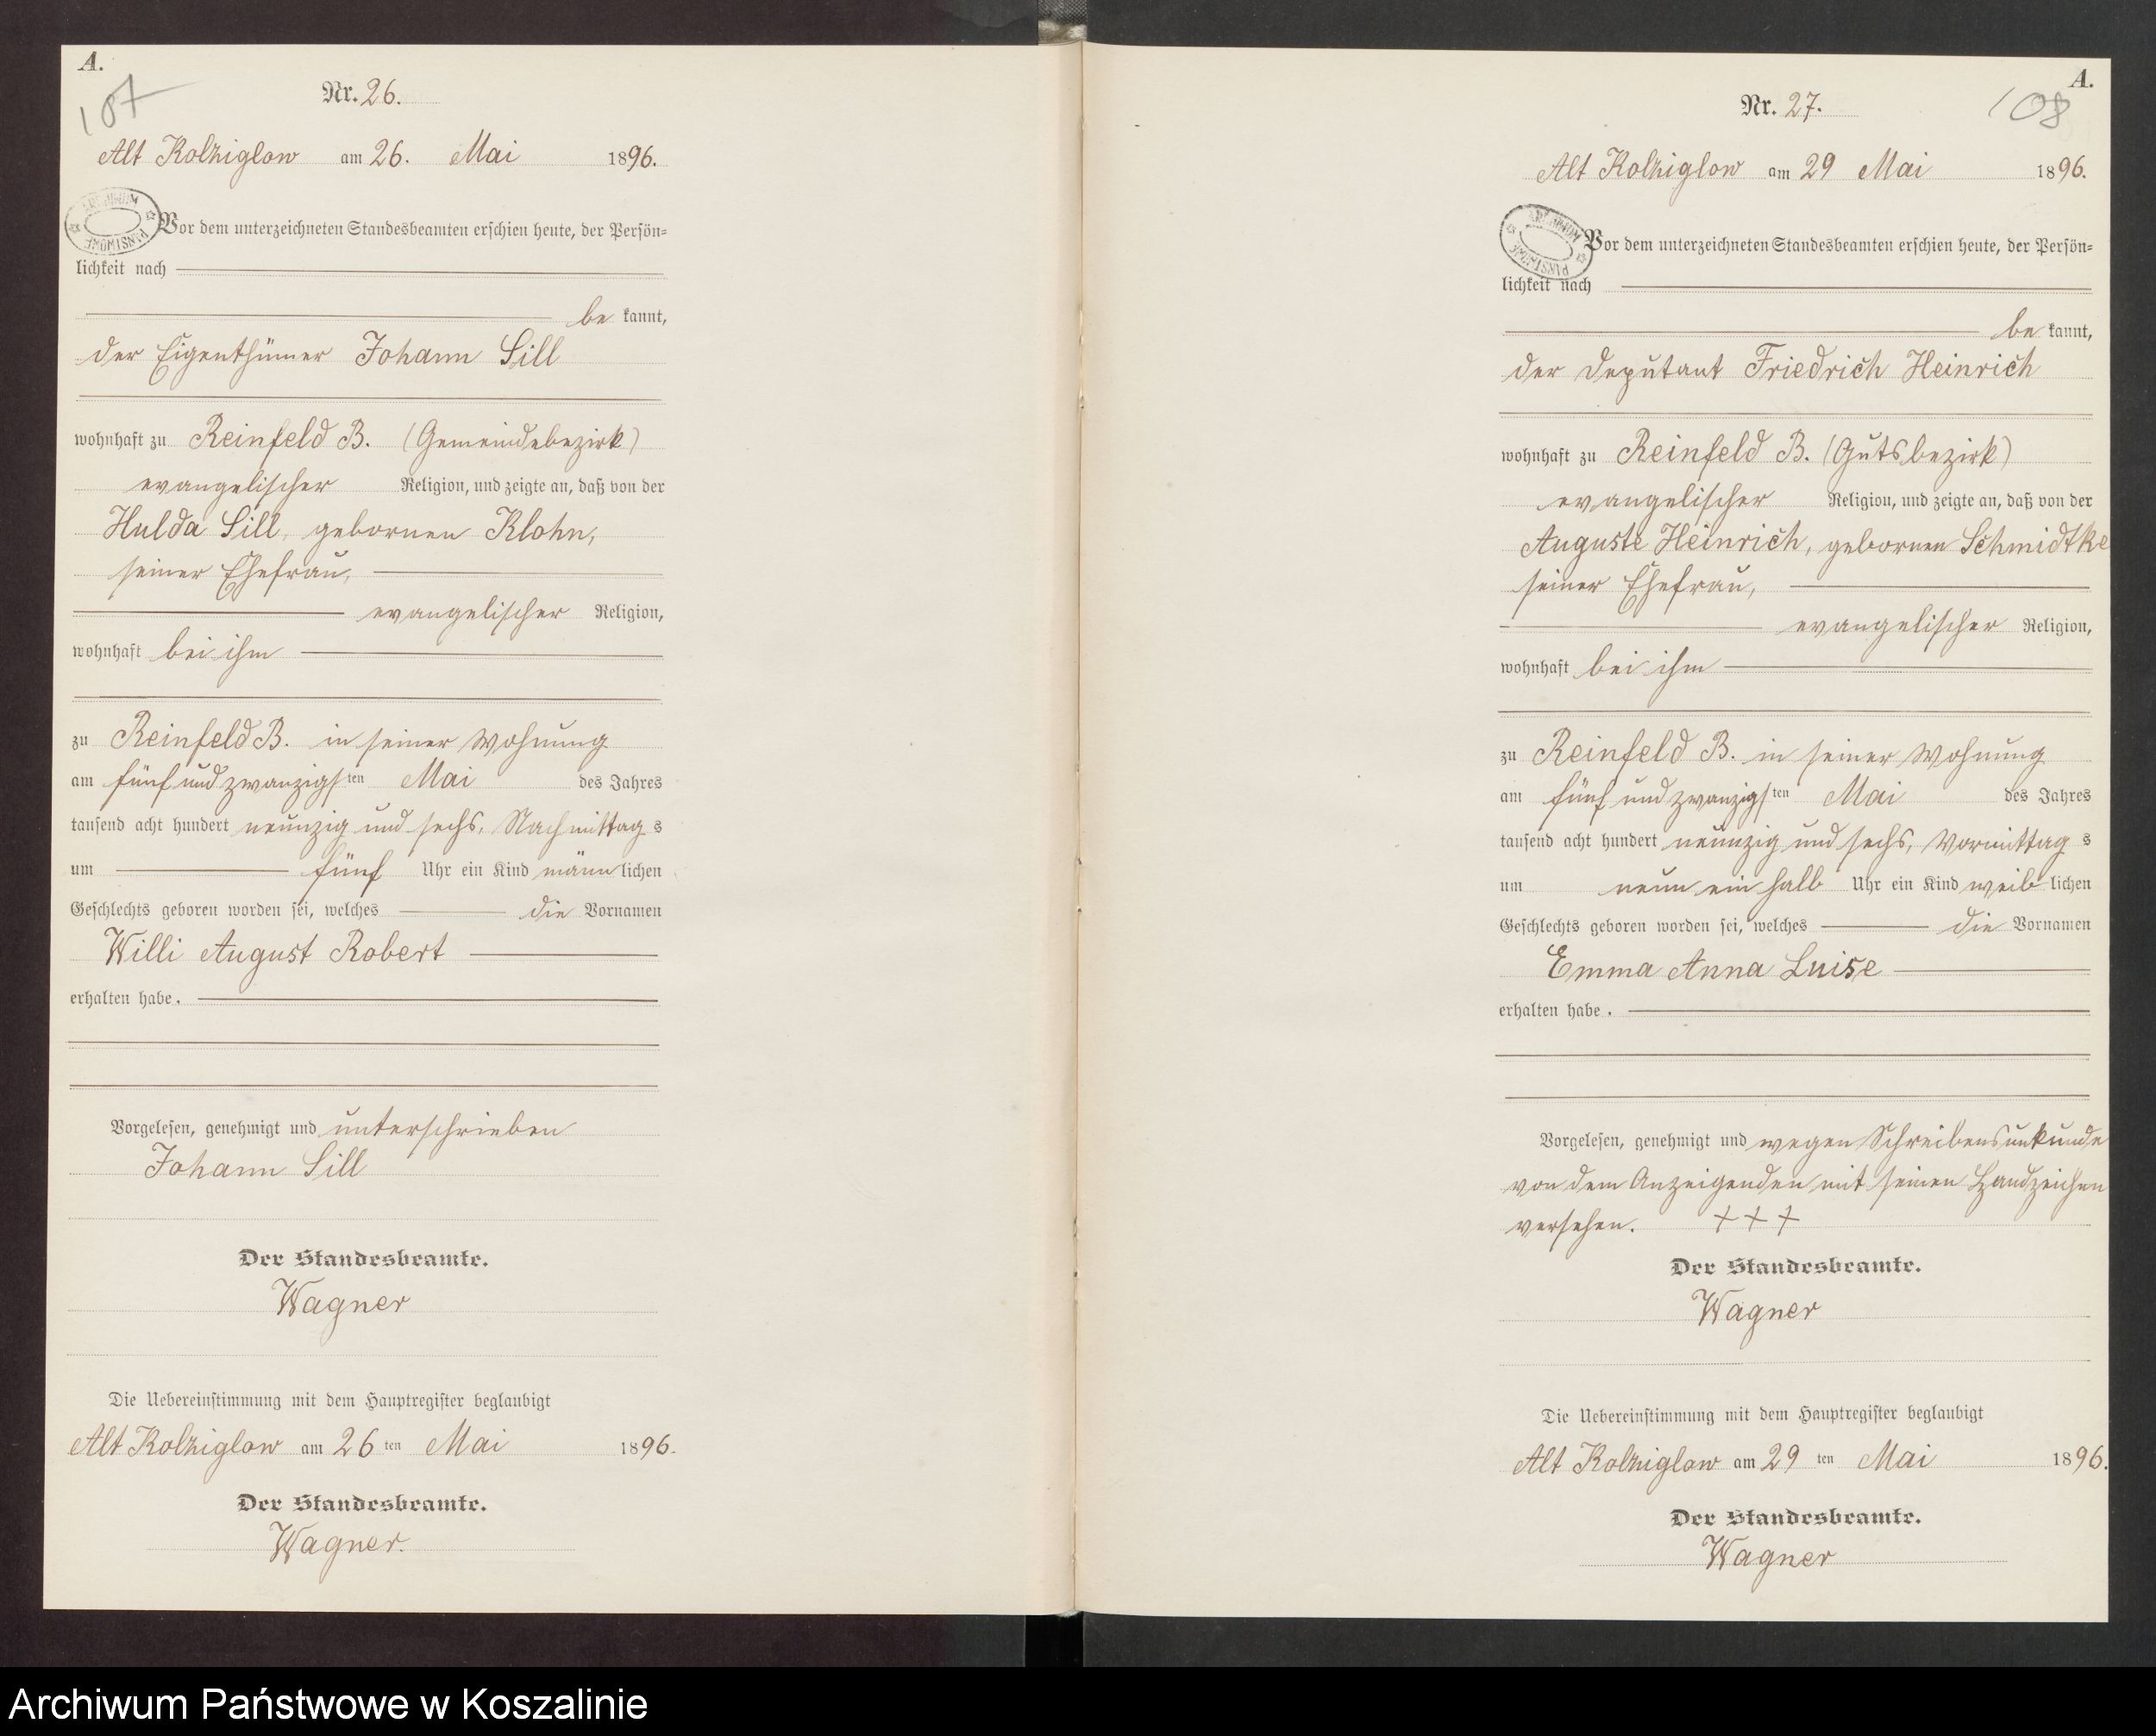 A.
107
Nr. 26.
Alt Kolziglow am 26. Mai 1896.
ARCHIWUM PAŃSTWOWE
Vor dem unterzeichneten Standesbeamten erschien heute, der Persön=
lichkeit nach
be kannt,
der Eigenthümer Johann Sill
wohnhaft zu Reinfeld B. (Gemeindebezirk)
evangelischer Religion, und zeigte an, daß von der
Hulda Sill, gebornen Klohn,
seiner Ehefrau,
evangelischer Religion,
wohnhaft bei ihm
zu Reinfeld B. in seiner Wohnung
am fünf und zwanzigsten Mai des Jahres
tausend acht hundert neunzig und sechs, Nachmittags
um fünf Uhr ein Kind männlichen
Geschlechts geboren worden sei, welches die Vornamen
Willi August Robert
erhalten habe.
Vorgelesen, genehmigt und unterschrieben
Johann Sill
Der Standesbeamte.
Wagner
Die Uebereinstimmung mit dem Hauptregister beglaubigt
Alt Kolziglow am 26 ten Mai 1896.
Der Standesbeamte.
Wagner.
A.
108
Nr. 27.
Alt Kolziglow am 29 Mai 1896.
ARCHIWUM PAŃSTWOWE
Vor dem unterzeichneten Standesbeamten erschien heute, der Persön=
lichkeit nach
be kannt,
der Deputant Friedrich Heinrich
wohnhaft zu Reinfeld B. (Gutsbezirk)
evangelischer Religion, und zeigte an, daß von der
Auguste Heinrich, gebornen Schmidtke
seiner Ehefrau,
evangelischer Religion,
wohnhaft bei ihm
zu Reinfeld B. in seiner Wohnung
am fünf und zwanzigsten Mai des Jahres
tausend acht hundert neunzig und sechs, Vormittags
um neun ein halb Uhr ein Kind weiblichen
Geschlechts geboren worden sei, welches die Vornamen
Emma Anna Luise
erhalten habe.
Vorgelesen, genehmigt und wegen Schreibensunkunde
von dem Anzeigenden mit seinen Handzeichen
versehen. +++
Der Standesbeamte.
Wagner
Die Uebereinstimmung mit dem Hauptregister beglaubigt
Alt Kolziglow am 29 ten Mai 1896.
Der Standesbeamte.
Wagner
Archiwum Państwowe w Koszalinie